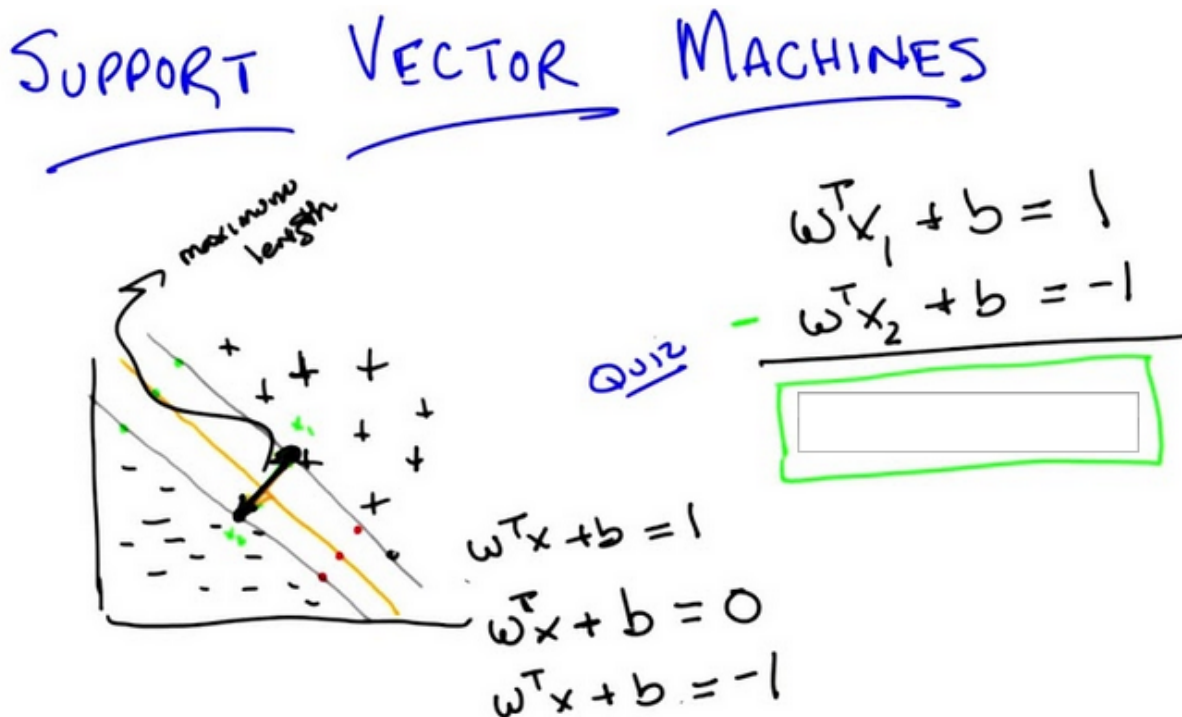 SUPPORT VECTOR MACHINES
maximum
length
wᵀx₁ + b = 1
- wᵀx₂ + b = -1
QUIZ
x₁
x₂
wᵀx + b = 1
wᵀx + b = 0
wᵀx + b = -1